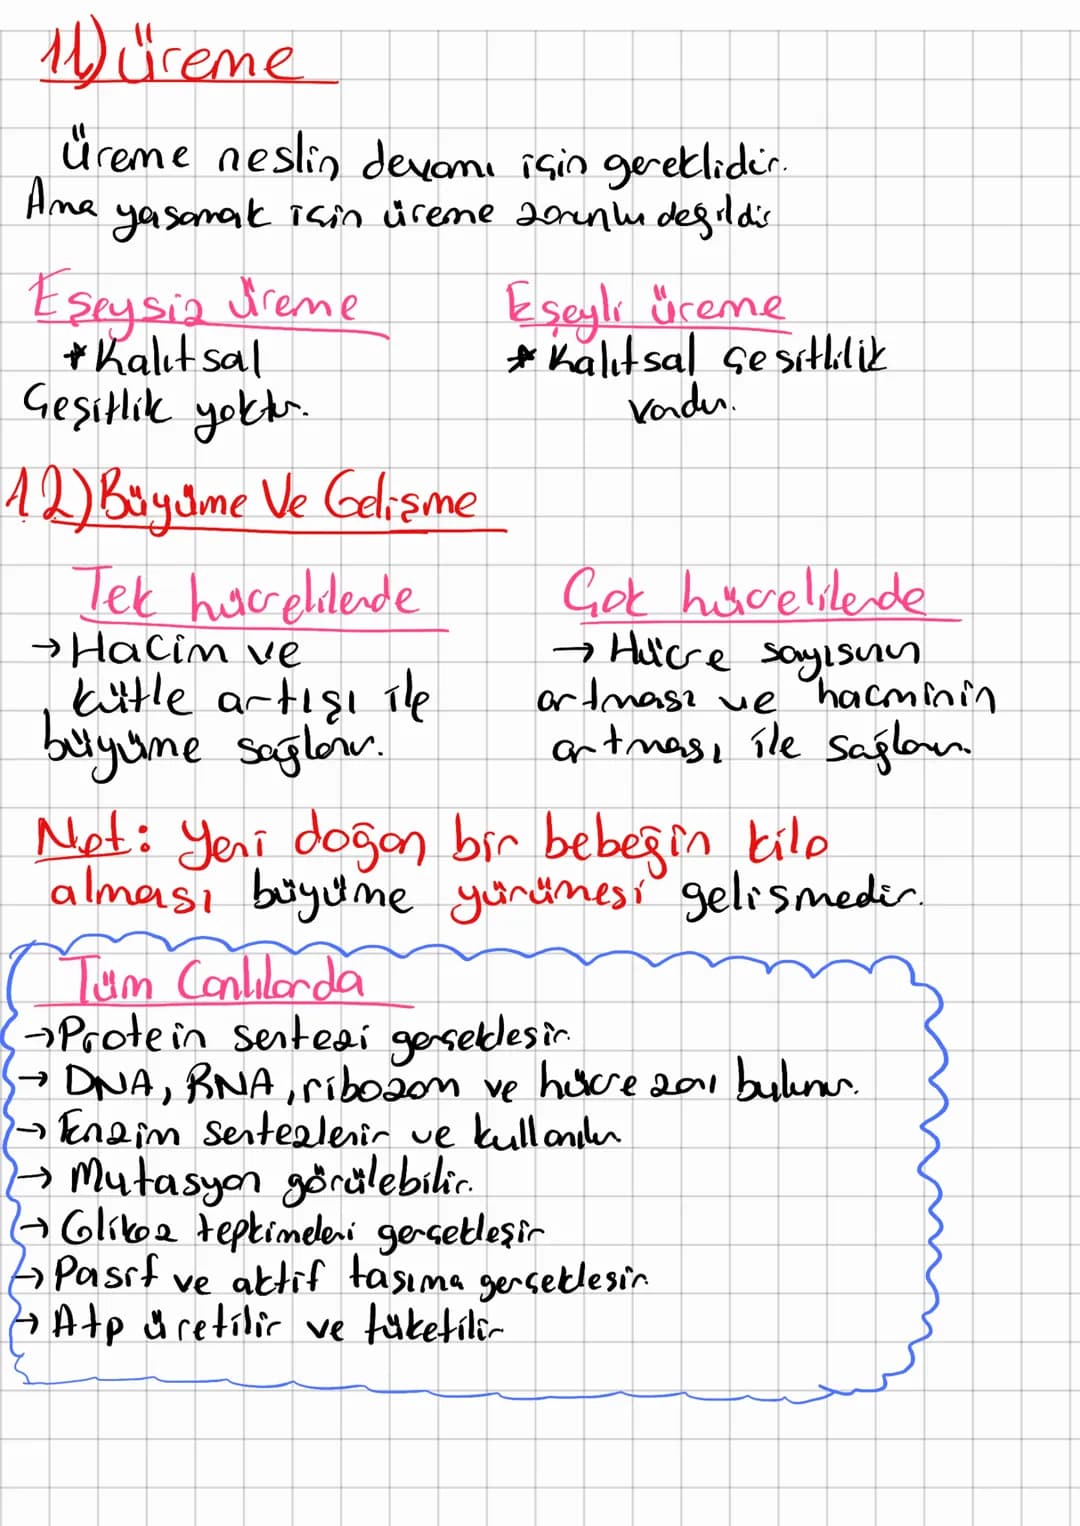 11) Üreme
Üreme neslin devamı için gereklidir.
Ama yaşamak için üreme zorunlu değildir
Eşeysiz üreme
* Kalıtsal
Çeşitlik yoktur.
Eşeyli üreme
* Kalıtsal çeşitlilik
vardır.
12) Büyüme Ve Gelişme
Tek hücrelilerde
→ Hacim ve
kütle artışı ile
büyüme sağlanır.
Çok hücrelilerde
→ Hücre sayısının
artması ve hacminin
artması ile sağlanır.
Not: Yeni doğan bir bebeğin kilo
alması büyüme yürümesi gelişmedir.
Tüm Canlılarda
→ Protein sentezi gerçekleşir.
→ DNA, RNA, ribozom ve hücre zarı bulunur.
→ Enzim sentezlenir ve kullanılır
→ Mutasyon görülebilir.
→ Glikoz tepkimeleri gerçekleşir
→ Pasif ve aktif taşıma gerçekleşir.
→ Atp üretilir ve tüketilir